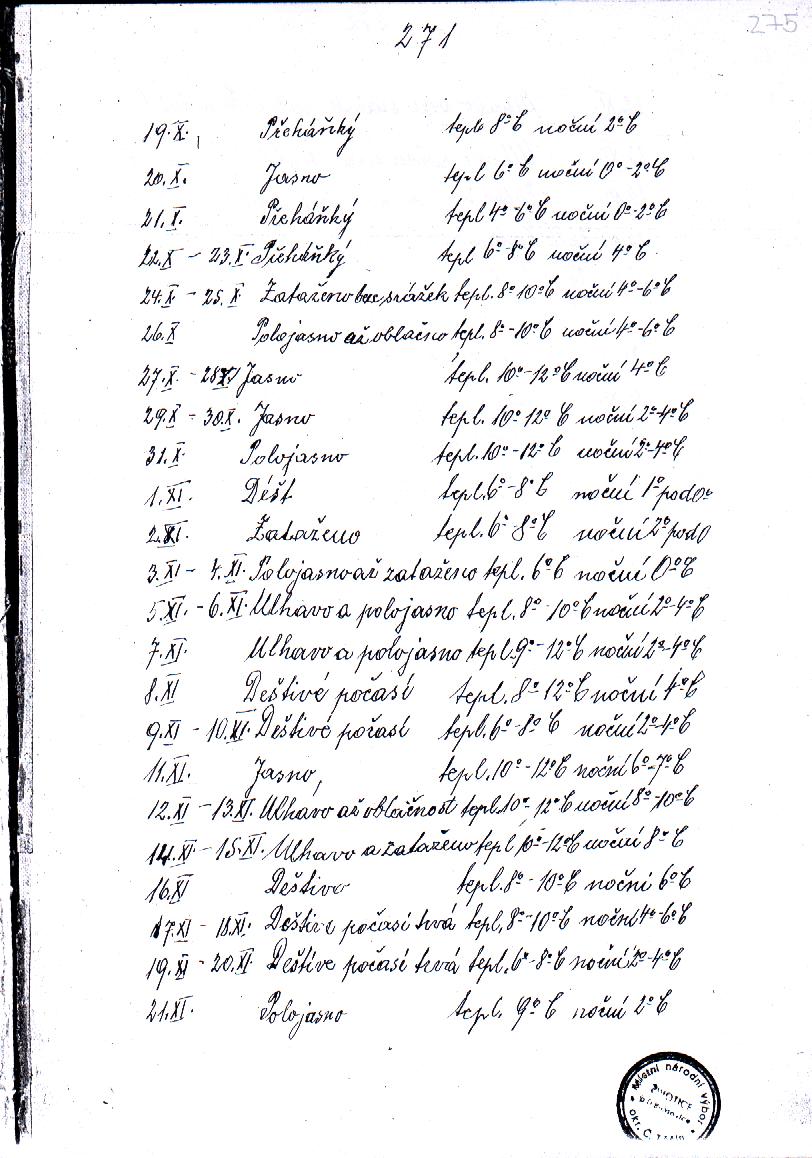 271
275
19.X. Přeháňky tepl 8º C noční 2º C
20.X. Jasno tepl 6º C noční 0º-2º C
21.X. Přeháňky tepl 4º-6º C noční 0º-2º C
22.X - 23.X. Přeháňky tepl 6º-8º C noční 4º C
24.X - 25.X. Zataženo bez srážek tepl. 8º 10º C noční 4º-6º C
26.X Polojasno až oblačno tepl. 8º-10º C noční 4º-6º C
27.X. - 28.X Jasno tepl. 10º-12º C noční 4º C
29.X - 30.X. Jasno tepl. 10º 12º C noční 2º-4º C
31.X. Polojasno tepl. 10º-12º C noční 2º-4º C
1.XI. Déšt tepl. 6º-8º C noční 1º pod 0º
2.XI. Zataženo tepl. 6º 8º C noční 2º pod 0
3.XI - 4.XI. Polojasno až zataženo tepl. 6º C noční 0º C
5.XI. - 6.XI. Mlhavo a polojasno tepl. 8º 10º C noční 2º-4º C
7.XI. Mlhavo a polojasno tepl. 9º-12º C noční 2º-4º C
8.XI Deštivé počasí tepl. 8º 12º C noční 4º C
9.XI - 10.XI. Deštivé počasí tepl. 6º-8º C noční 2º-4º C
11.XI. Jasno, tepl. 10º-12º C noční 6º-7º C
12.XI - 13.XI. Mlhavo až oblačnost tepl. 10º 12º C noční 8º-10º C
14.XI - 15.XI. Mlhavo a zataženo tepl 10º-12º C noční 8º C
16.XI Deštivo tepl. 8º-10º C noční 6º C
17.XI - 18.XI. Deštivé počasí trvá tepl. 8º-10º C noční 4º-6º C
19.XI - 20.XI. Deštive počasí trvá tepl. 6º-8º C noční 2º-4º C
21.XI. Polojasno tepl. 9º C noční 2º C
Místní národní výbor
ŽIVOTICE
okr.